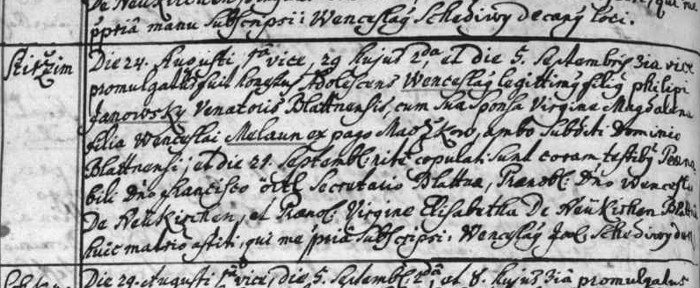 propria manu subscripsi: Wenceslaȳ Schediwy decanȳ loci.
Stržzim
Die 24. Augusti, 1ma vice, 29 hujus 2da, et die 5. Septembris 3ia vice
promulgatus fuit honestus Adolescens Wenceslaȳ legittimȳ filiȳ philipi
Janowsky Venatoris Blattnensis, cum sua sponsa Virgine Magdalena
filia Wenceslai Melaun ex pago ambo subditi Dominio
Blattnensi, et die 21. Septembr: rite copulati sunt coram testibȳ
bili Dño Francisco Örtl Secretario Blattnæ, Prænobl: Dño Wencesl:
De Neükirchen, et Prænol: Virgine Elisabetha De Neükirchen
huic mat̄rio astiti, qui me ppria subscripsi. Wenceslaȳ Schediwy
Die 29. Augusti 1ma vice, die 5. Septembl: 2da, et 8. hujus 3ia promulgatus